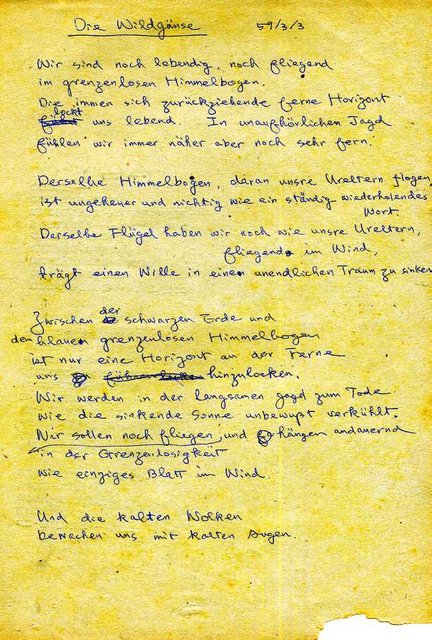 Die Wildgänse 59/3/3
Wir sind noch lebendig, noch fliegend
im grenzenlosen Himmelbogen.
Die immen sich zurückziehende ferne Horizont
lockt
uns lebend. In unaufhörlichen Jagd
fühlen wir immer näher aber noch sehr fern.
Derselbe Himmelbogen, daran unsre Ureltern flogen,
ist ungeheuer und nichtig wie ein ständig wiederholendes
Wort.
Derselbe Flügel haben wir noch wie unsre Ureltern,
fliegend im Wind,
trägt einen Wille in einen unendlichen Traum zu sinken
der
Zwischen schwarzen Erde und
den blauen grenzenlosen Himmelbogen
ist nur eine Horizont an der Ferne
uns hinzulocken.
Wir werden in der langsamen Jagd zum Tode
wie die sinkende Sonne unbewußt verkühlt.
Wir sollen noch fliegen, und hängen andauernd
in der Grenzenlosigkeit
wie einziges Blatt im Wind.
Und die kalten Wolken
bewachen uns mit kalten Augen.